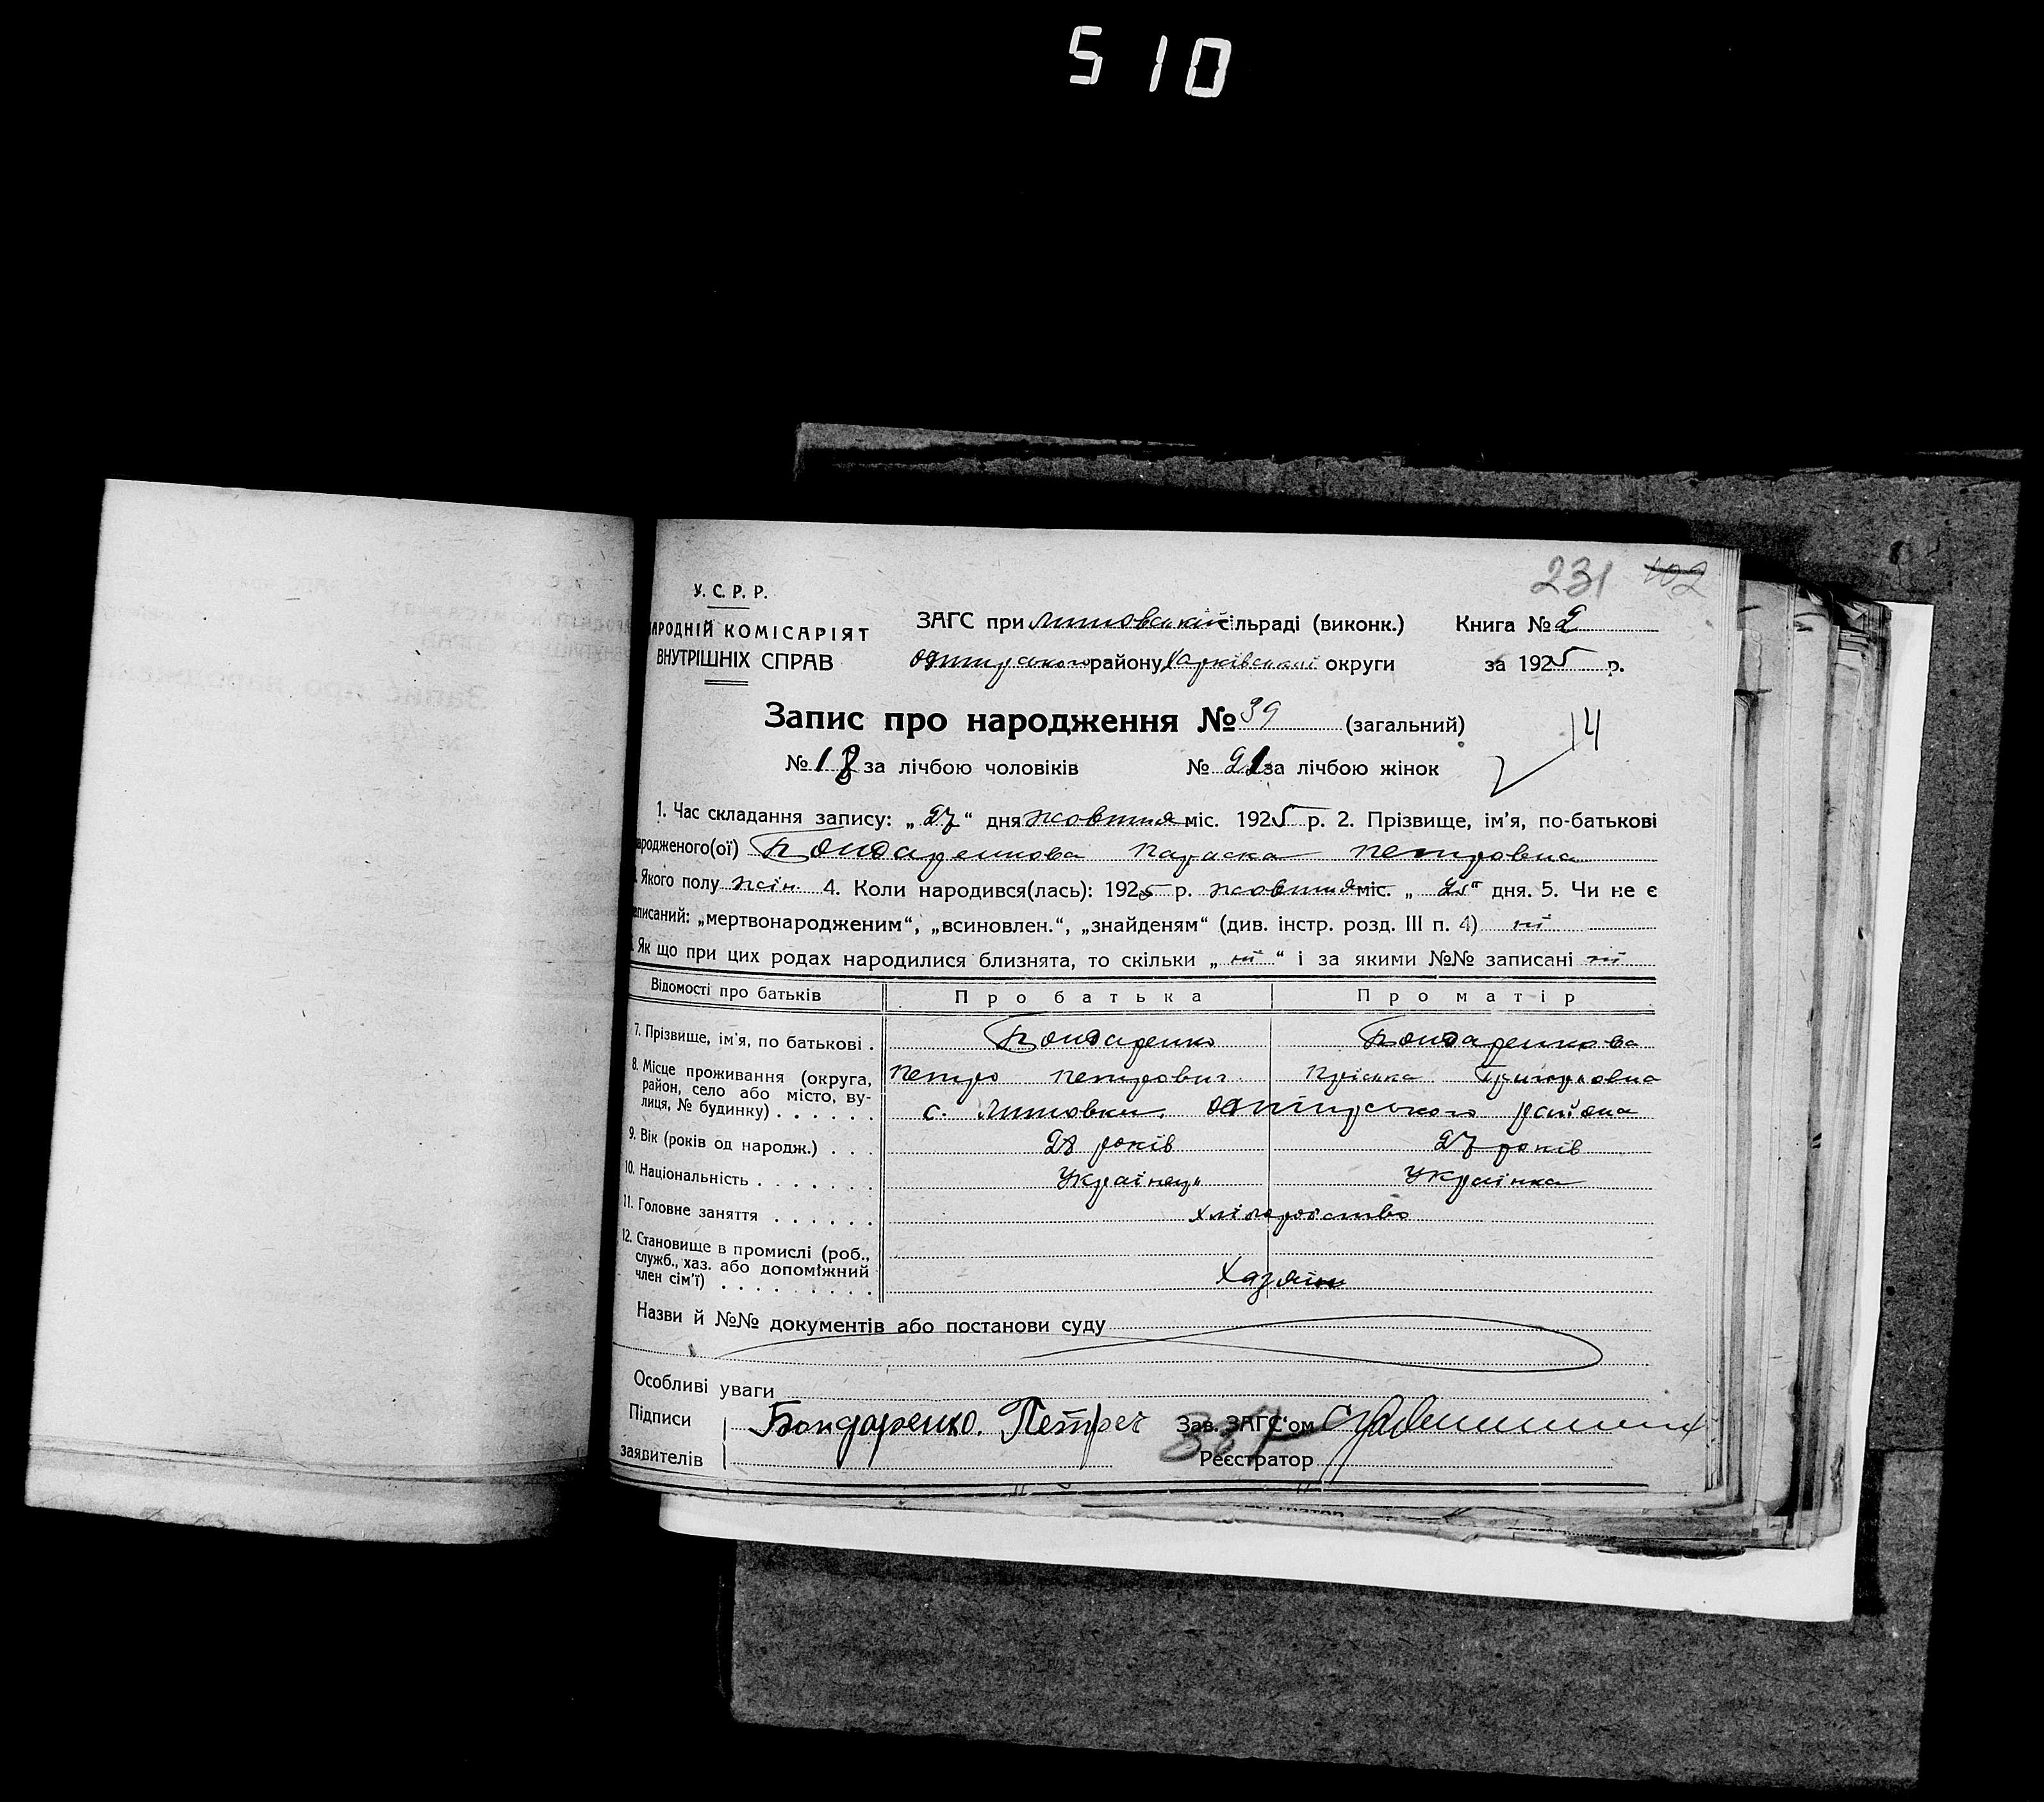 510
231 102
У. С. Р. Р.
АРОДНІЙ КОМІСАРІЯТ
ВНУТРІШНІХ СПРАВ
ЗАГС при Литовський сільраді (виконк.) Книга № 2
району Харківської округи за 1925 р.
Запис про народження № 39 (загальний)
14
№ 18 за лічбою чоловіків № 21 за лічбою жінок
1. Час складання запису: „ 27 “ дня жовтня міс. 1925 р. 2. Прізвище, ім'я, по-батькові
ародженого(ої) Бондаренкова Параска Петровна
Якого полу жін. 4. Коли народився(лась): 1925 р. жовтня міс. „ 25 “ дня. 5. Чи не є
писаний: „мертвонародженим“, „всиновлен.“, „знайденям“ (див. інстр. розд. III п. 4) ні
Як що при цих родах народилися близнята, то скільки „ ні “ і за якими №№ записані ні
Відомості про батьків Про батька Про матір
7. Прізвище, ім'я, по батькові . Бондаренко Бондаренкова
Петро Петрович Пріська Григоровна
8. Місце проживання (округа, район, село або місто, вулиця, № будинку) . . . . . . с. Литовки района
9. Вік (років од народж.) . . . 28 років 27 років
10. Національність . . . . . . . Українець Українка
11. Головне заняття . . . . . . хліборобство
12. Становище в промислі (роб., служб., хаз. або допоміжний член сім'ї) . . . . . . . . . Хазяїн
Назви й №№ документів або постанови суду
Особливі уваги
Підписи Бондаренко. Зав. ЗАГС'ом
заявителів Реєстратор